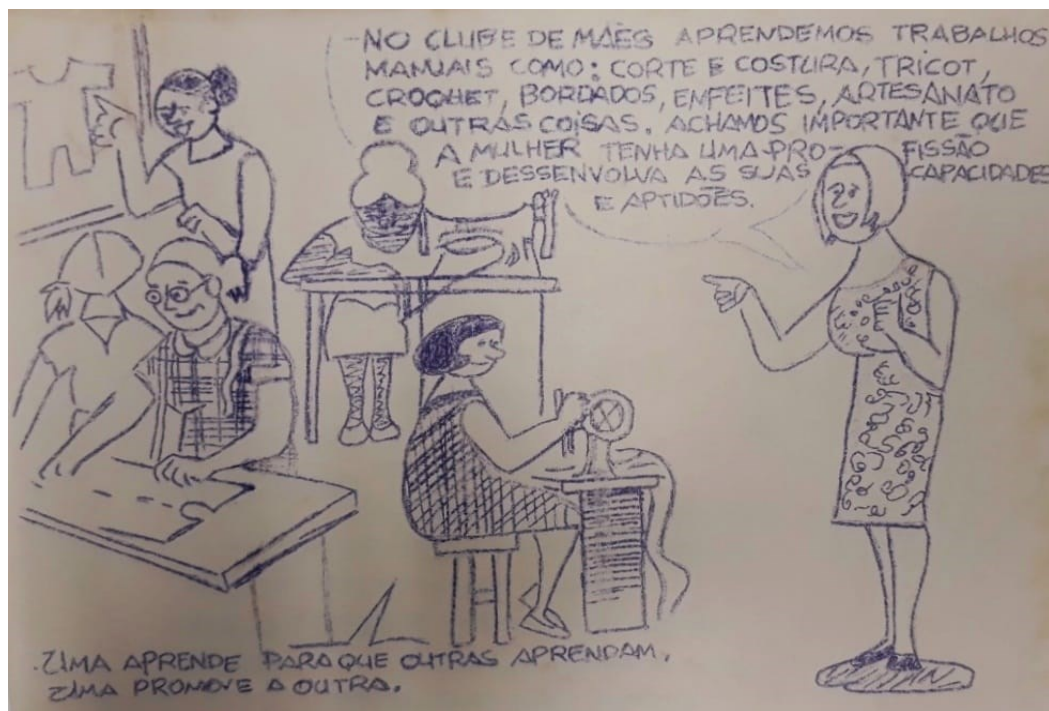 -NO CLUBE DE MÃES APRENDEMOS TRABALHOS
MANUAIS COMO: CORTE E COSTURA, TRICOT,
CROQUET, BORDADOS, ENFEITES, ARTESANATO
E OUTRAS COISAS. ACHAMOS IMPORTANTE QUE
A MULHER TENHA UMA PRO- FISSÃO
E DESSENVOLVA AS SUAS CAPACIDADES
E APTIDÕES.
.UMA APRENDE PARA QUE OUTRAS APRENDAM.
UMA PROMOVE A OUTRA.